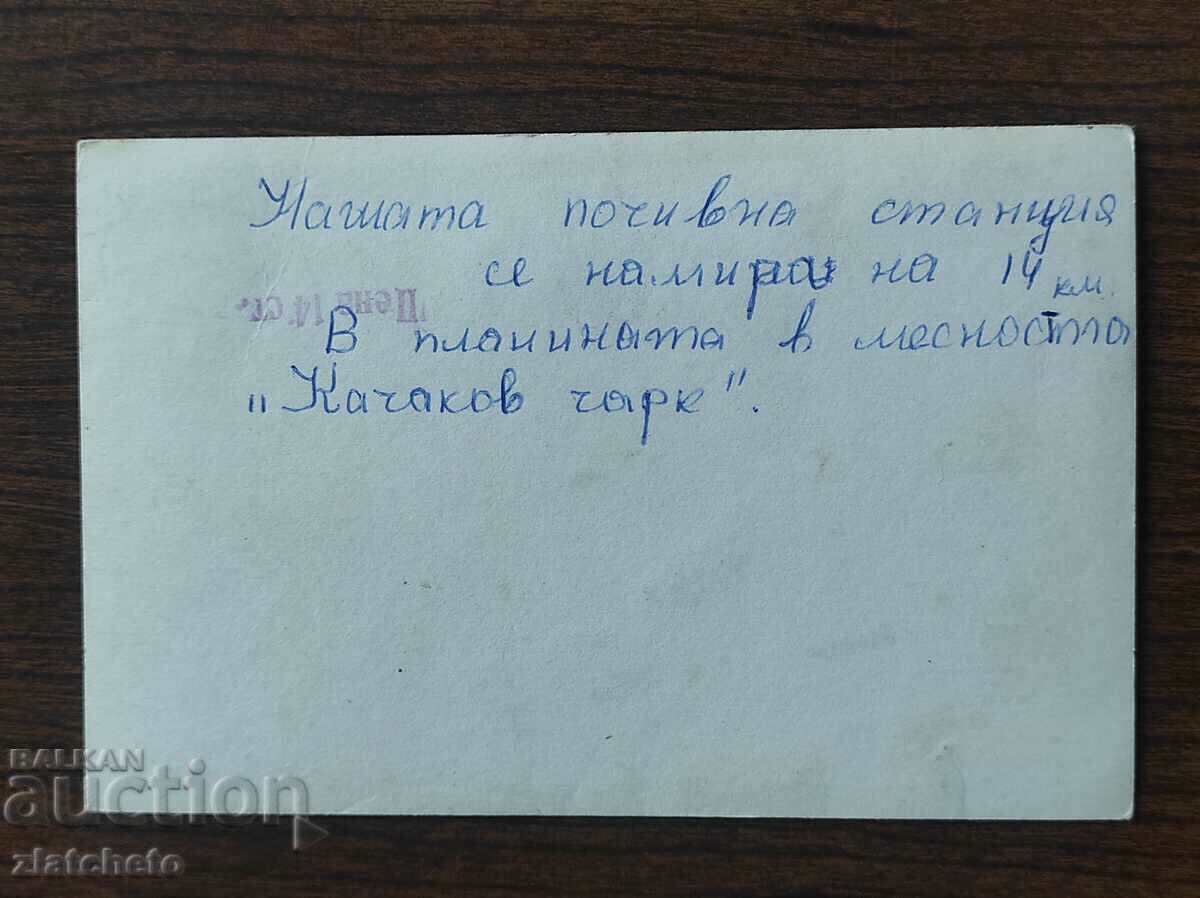 Нашата почивна станция
се намира на 14 км.
В планината в месността
„Качаков чарк".
Цена 14 ст.
BALKAN
auction
zlatcheto